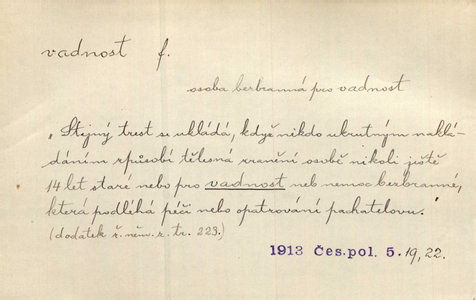 vadnost f.
osoba bezbranná pro vadnost
„Stejný trest se ukládá, když někdo ukrutným naklá-
dáním způsobí tělesná zranění osobě nikoli ještě
14 let staré nebo pro vadnost neb nemoc bezbranné,
která podléhá péči nebo opatrování pachatelovu."
(dodatek ř. něm. z. tr. 223.)
1913 Čes. pol. 5. 19, 22.